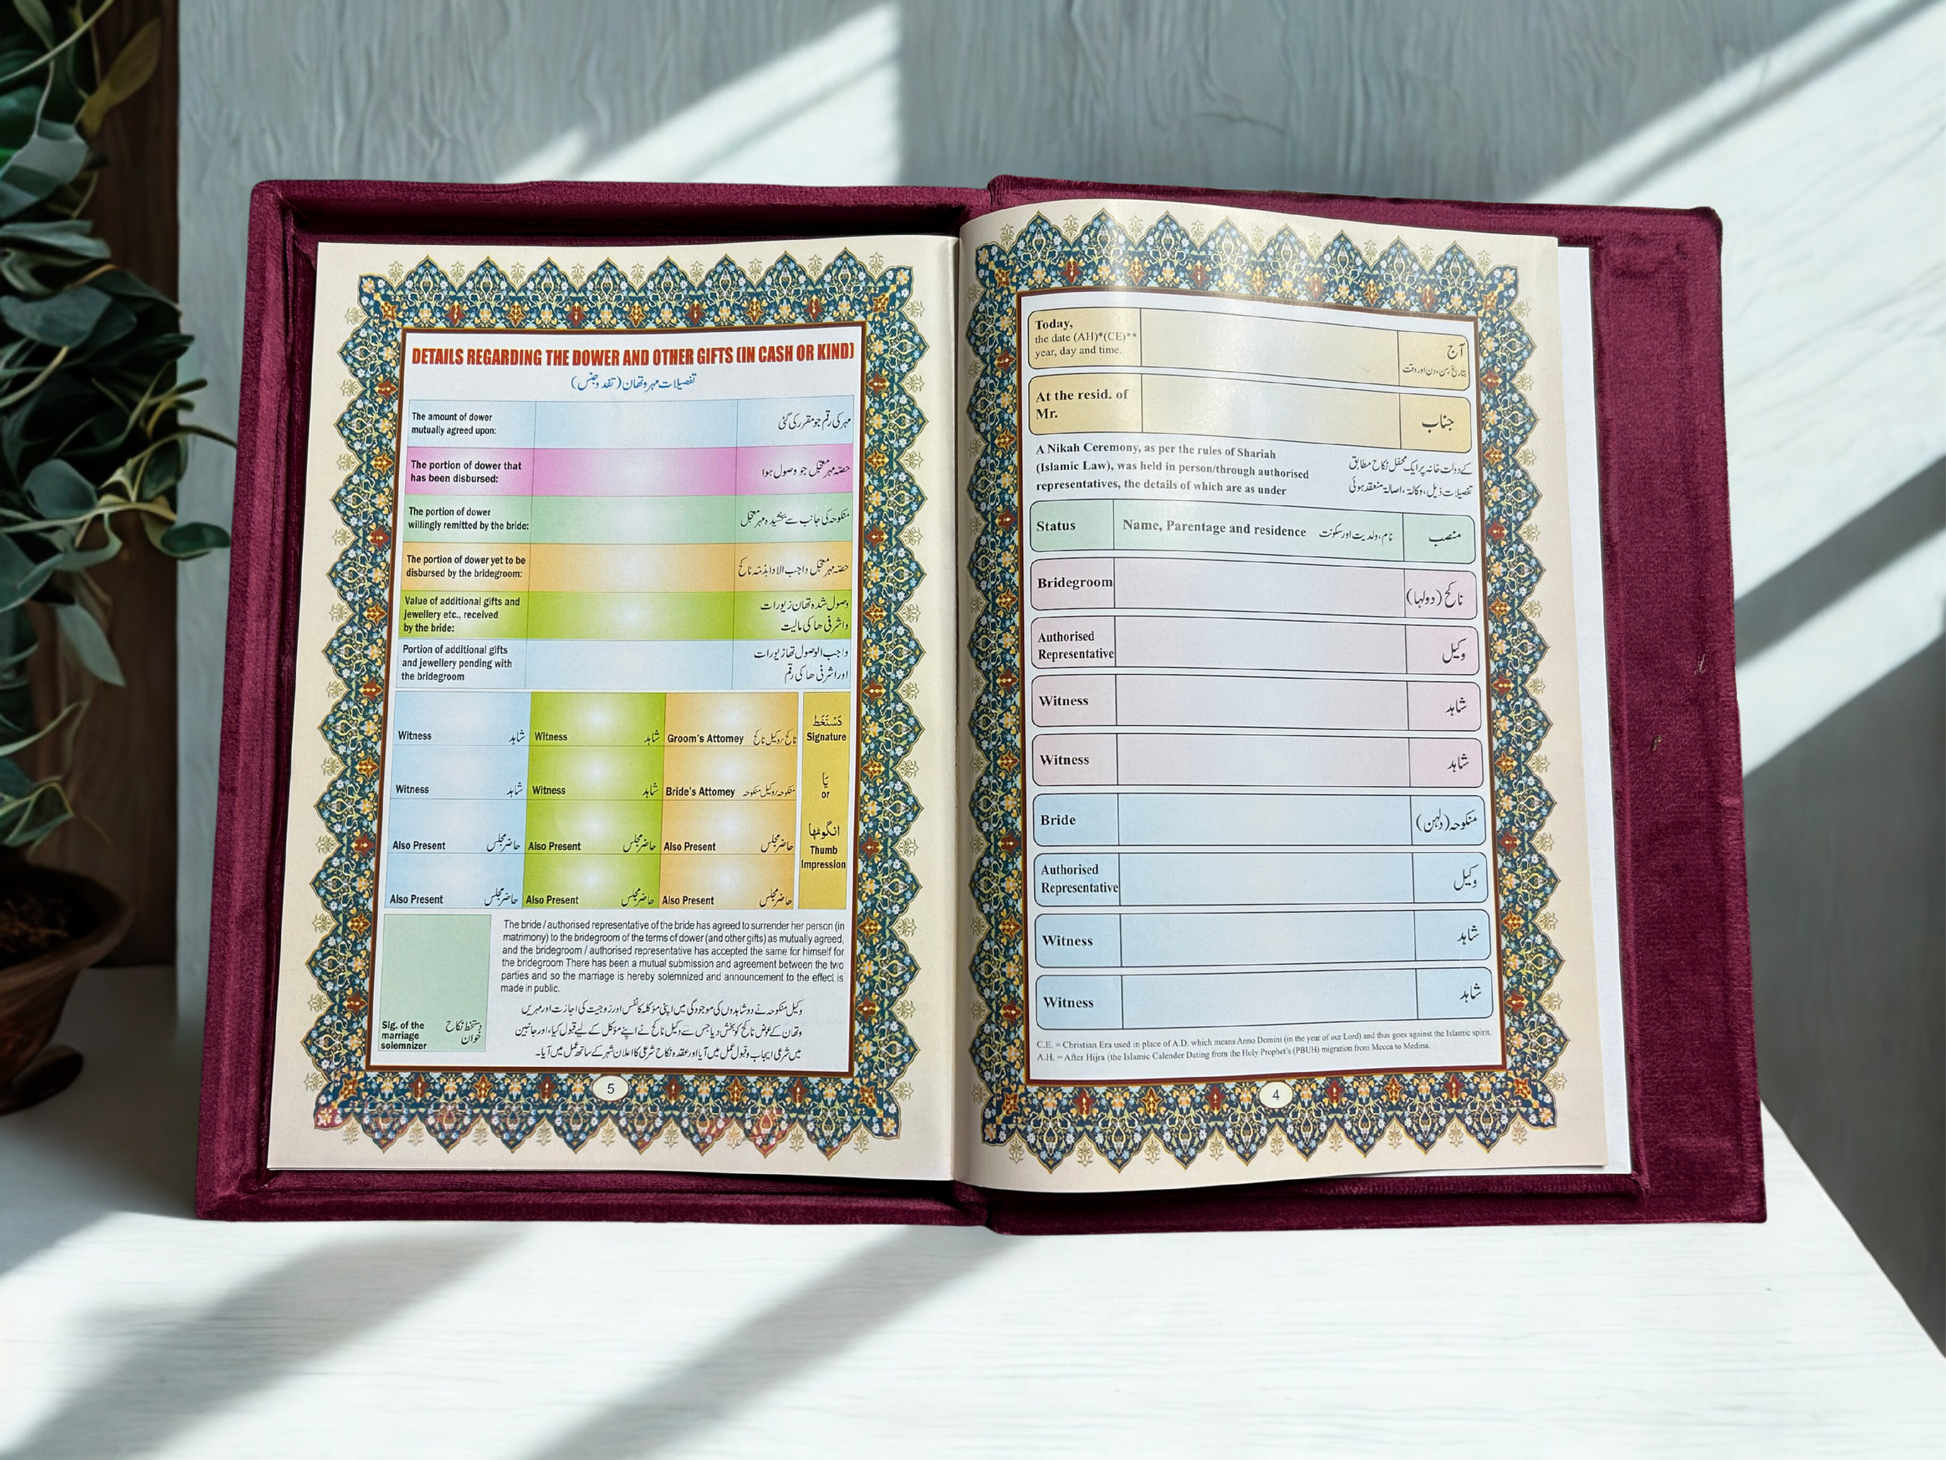 Today,
the date (AH)*(CE)**
year, day and time.
آج
بتاریخ، سن، دن اور وقت
At the resid. of
Mr.
جناب
A Nikah Ceremony, as per the rules of Shariah
(Islamic Law), was held in person/through authorised
representatives, the details of which are as under
کے دولت خانہ پر ایک محفل نکاح مطابق
تفصیلات ذیل، وکالۃ، اصالۃ منعقد ہوئی
Status
Name, Parentage and residence نام، ولدیت اور سکونت
منصب
Bridegroom
ناکح (دولہا)
Authorised
Representative
وکیل
Witness
شاہد
Witness
شاہد
Bride
منکوحہ (دلہن)
Authorised
Representative
وکیل
Witness
شاہد
Witness
شاہد
C.E. = Christian Era used in place of A.D. which means Anno Domini (in the year of our Lord) and thus goes against the Islamic spirit.
A.H. = After Hijra (the Islamic Calender Dating from the Holy Prophet's (PBUH) migration from Mecca to Medina.
4
DETAILS REGARDING THE DOWER AND OTHER GIFTS (IN CASH OR KIND)
تفصیلات مہر وتھان (نقد و جنس)
The amount of dower
mutually agreed upon:
مہر کی رقم جو مقرر کی گئی
The portion of dower that
has been disbursed:
حصہ مہر معجّل جو وصول ہوا
The portion of dower
willingly remitted by the bride:
منکوحہ کی جانب سے بخشیدہ مہر معجّل
The portion of dower yet to be
disbursed by the bridegroom:
حصہ مہر معجّل واجب الادا بذمّہ ناکح
Value of additional gifts and
jewellery etc., received
by the bride:
وصول شدہ تھان زیورات
واشرفی ھا کی مالیت
Portion of additional gifts
and jewellery pending with
the bridegroom
واجب الوصول تھا زیورات
اور اشرفی ھا کی رقم
Witness شاہد Witness شاہد Groom's Attorney ناکح / وکیل ناکح
Witness شاہد Witness شاہد Bride's Attorney منکوحہ / وکیل منکوحہ
Also Present حاضر مجلس Also Present حاضر مجلس Also Present حاضر مجلس
Also Present حاضر مجلس Also Present حاضر مجلس Also Present حاضر مجلس
دستخط
Signature
یا
or
انگوٹھا
Thumb
Impression
Sig. of the
marriage
solemnizer
دستخط نکاح
خوان
The bride / authorised representative of the bride has agreed to surrender her person (in
matrimony) to the bridegroom of the terms of dower (and other gifts) as mutually agreed,
and the bridegroom / authorised representative has accepted the same for himself for
the bridegroom There has been a mutual submission and agreement between the two
parties and so the marriage is hereby solemnized and announcement to the effect is
made in public.
وکیل منکوحہ نے دو شاہدوں کی موجودگی میں اپنی مؤکلہ کا نفس اور زوجیت کی اجازت اور مہر میں
وتھان کے عوض ناکح کو بخش دیا جس سے وکیل ناکح نے اپنے مؤکل کے لیے قبول کیا، اور جانبین
میں شرعی ایجاب و قبول عمل میں آیا اور عقدہ نکاح شرعی کا اعلان شہر کے ساتھ عمل میں آیا۔
5